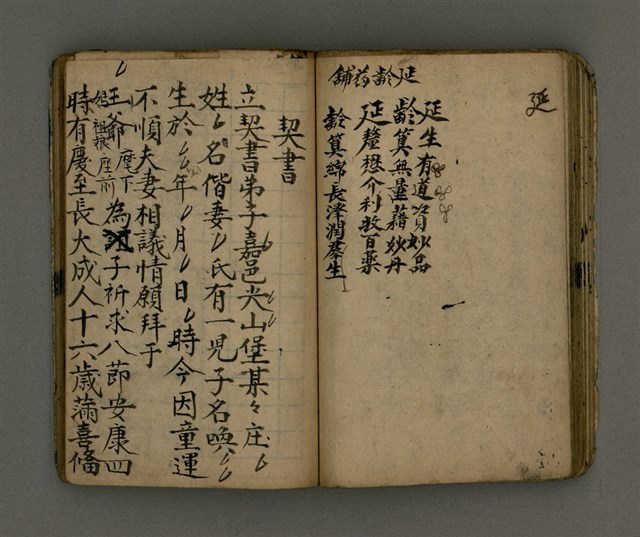 延
延齡药舖
延生有道資妙品
齡算無量藉妙丹
延釐懋介利救百藥
齡算綿長澤潤羣生
契書
立契書弟子嘉邑尖山堡某々庄
姓名偕妻氏有一児子名喚
生於年月日時今因童運
不順夫妻相議情願拜于
王爺麾下為子祈求八節安康四
祖娘座前
時有慶至長大成人十六歳滿喜備